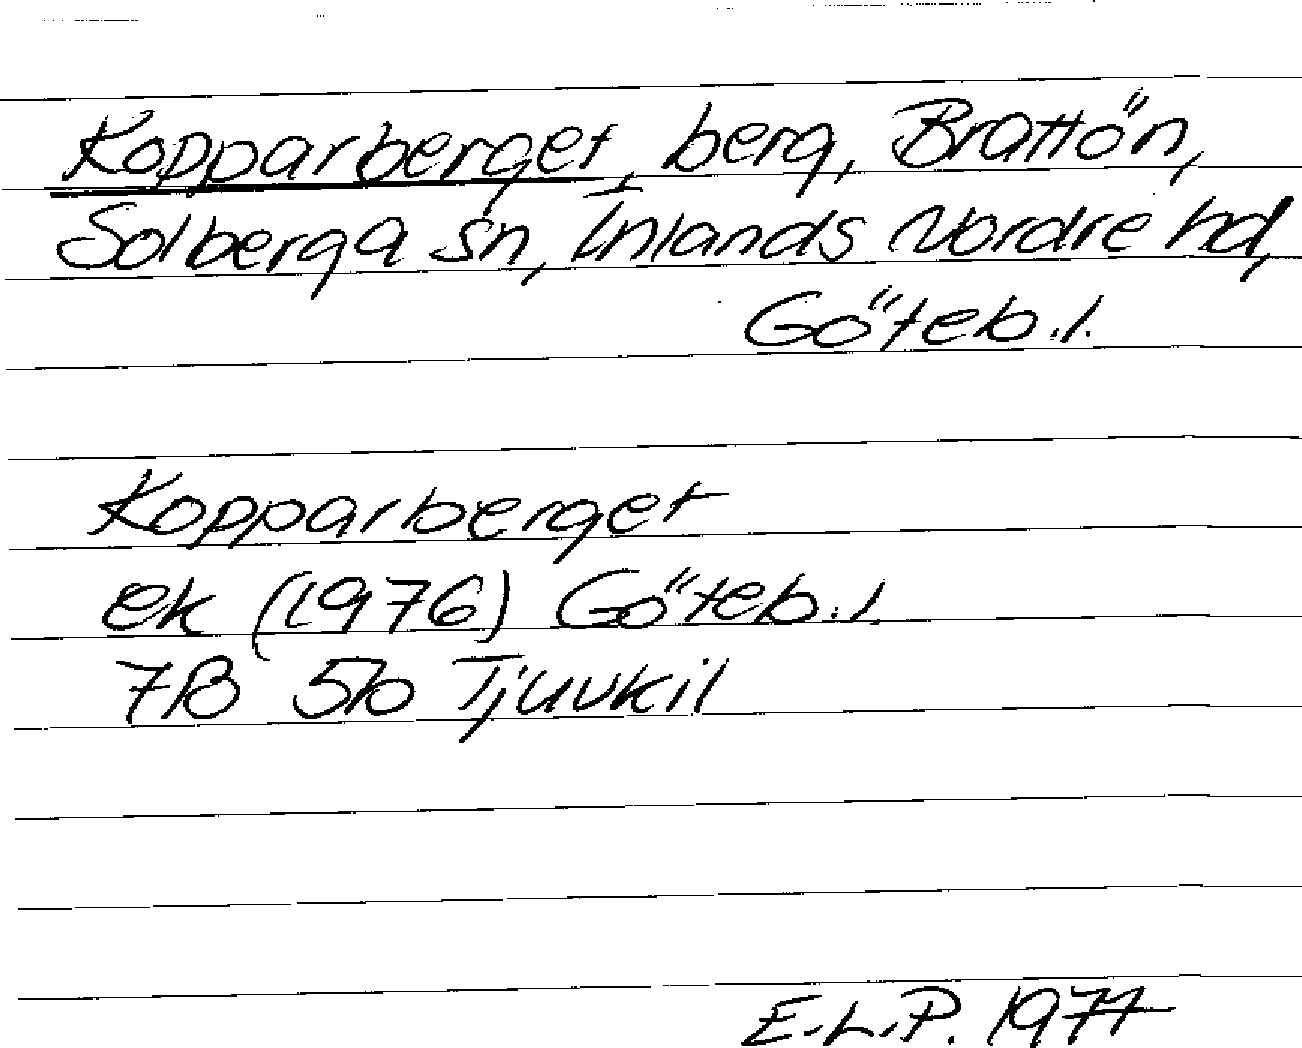 Kopparberget, berg, Brattön,
Solberga sn, Inlands Nordre hd,
Göteb.l.
Kopparberget
ek (1976) Göteb.l.
7B 5b Tjuvkil
E.L.P. 1977